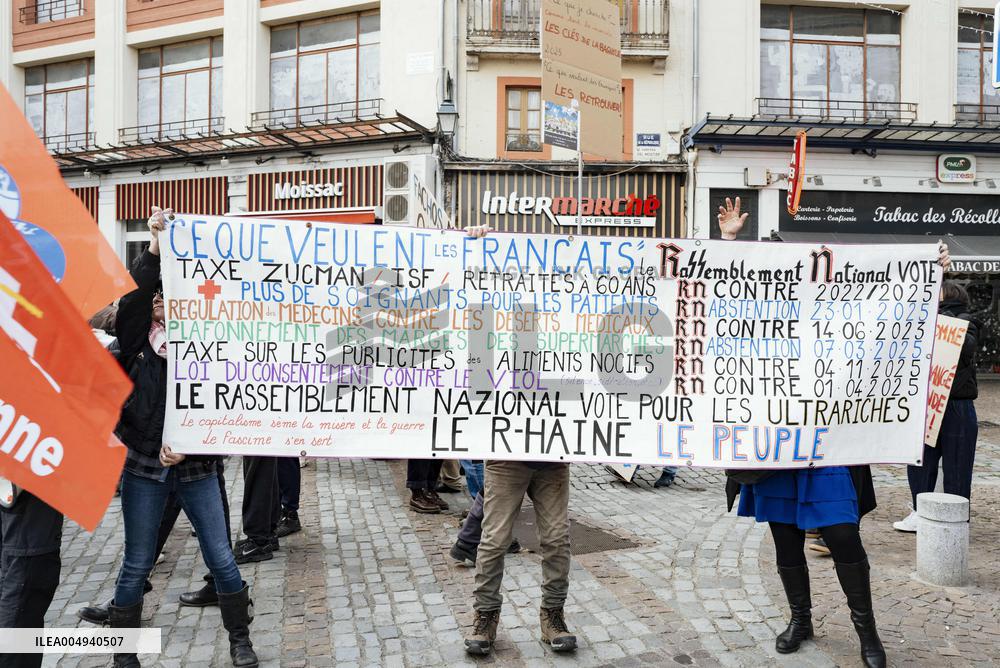 Ce que je cherche ?
LES CLÉS DE LA BAGNOLE
LES RETROUVER!
RUE
Moissac
InterMarché
EXPRESS
TABAC
PMU
express
Carterie - Papeterie
Boissons - Confiserie
Tabac des Récoll
TABAC DES
FACHOS
CE QUE VEULENT LES FRANÇAIS : Le RaSSemblement National VOTE
TAXE ZUCMAN / ISF / RETRAITES À 60 ANS RN CONTRE 2022/2025
+ PLUS DE SOIGNANTS POUR LES PATIENTS RN ABSTENTION 23.01.2025
REGULATION des MEDECINS CONTRE LES DESERTS MEDICAUX RN CONTRE 14.06.2023
PLAFONNEMENT DES MARGES DES SUPERMARCHES RN ABSTENTION 07.03.2025
TAXE SUR LES PUBLICITES des ALIMENTS NOCIFS RN CONTRE 04.11.2025
LOI DU CONSENTEMENT CONTRE LE VIOL RN CONTRE 01.04.2025
LE RASSEMBLEMENT NAZIONAL VOTE POUR LES ULTRARICHES
Le capitalisme sème la misere et la guerre
Le Fascime s'en sert
LE R-HAINE LE PEUPLE
nne
ILEA004940507